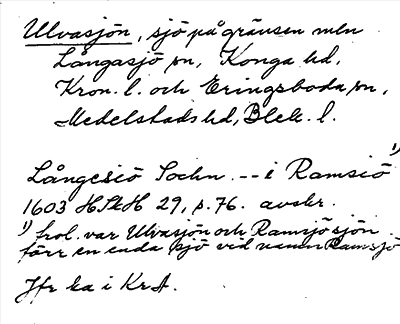 Ulvasjön, sjö på gränsen mln
Långasjö sn, Konga hd,
Kron. l. och Eringsboda sn,
Medelstads hd, Blek. l.
Långesiö Sochn. -- i Ramsiö 1)
1603 HSkH 29, s. 76. avskr.
1) trol. var Ulvasjön och Ramsjösjön
förr en enda sjö vid namn Ramsjö
Jfr ka i KrA.